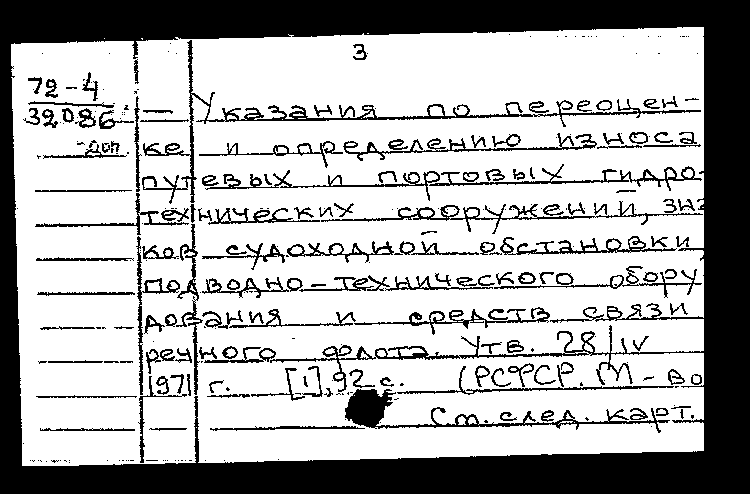 3
72-4
32086
доп
— Указания по переоцен-
ке и определению износа
путевых и портовых гидро-
технических сооружений, зна
ков судоходной обстановки,
подводно-технического обору
дования и средств связи
речного флота. Утв. 28/IV
1971 г. [1], 92 с. (РСФСР. М-во
См. след. карт.